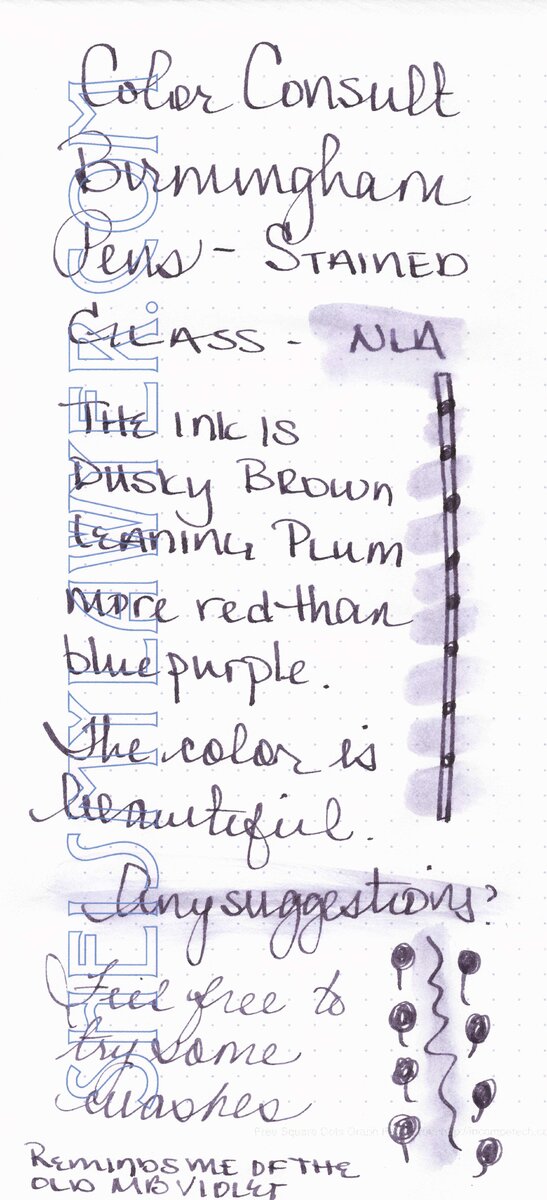 Color Consult
Birmingham
Pens - STAINED
GLASS - NLA
THE ink IS
DUSKY BROWN
LEANING PLUM
more red than
blue purple.
The color is
beautiful.
Any suggestions?
Feel free to
try some
washes
REMINDS ME OF THE
OLD MB VIOLET
SHEISMYLAWYER.COM